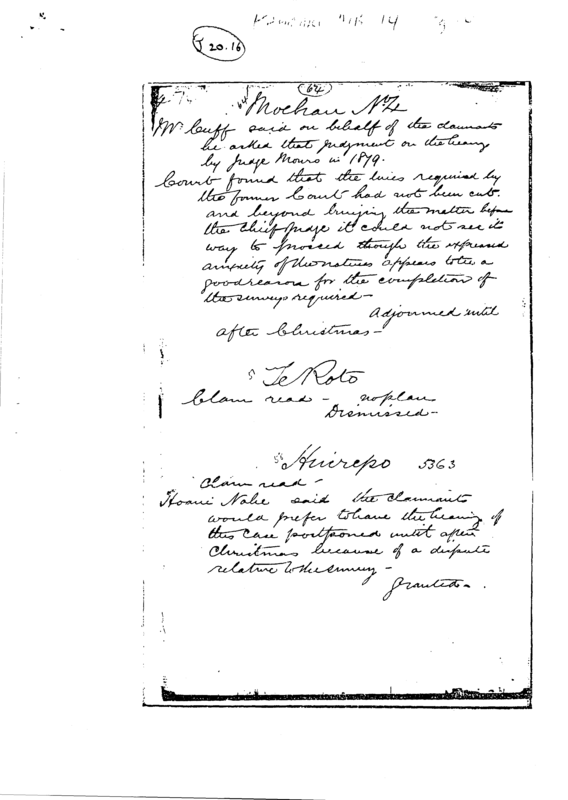 14
J 20.16
64
Moehau No 4
Mr Cuff said on behalf of the claimants
he asked that judgment on the hearing
by Judge Monro in 1879.
Court found that the lines required by
the former Court had not been cut
and beyond bringing the matter before
the Chief Judge it could not see its
way to proceed though the expressed
anxiety of the natives appears to be a
good reason for the completion of
the surveys required —
Adjourned until
after Christmas —
Te Roto
Claim read — no plan
Dismissed —
Huirepo 5363
Claim read —
Hoani Nahe said the claimants
would prefer to have the hearing of
this case postponed until after
Christmas because of a dispute
relative to the survey —
Granted —